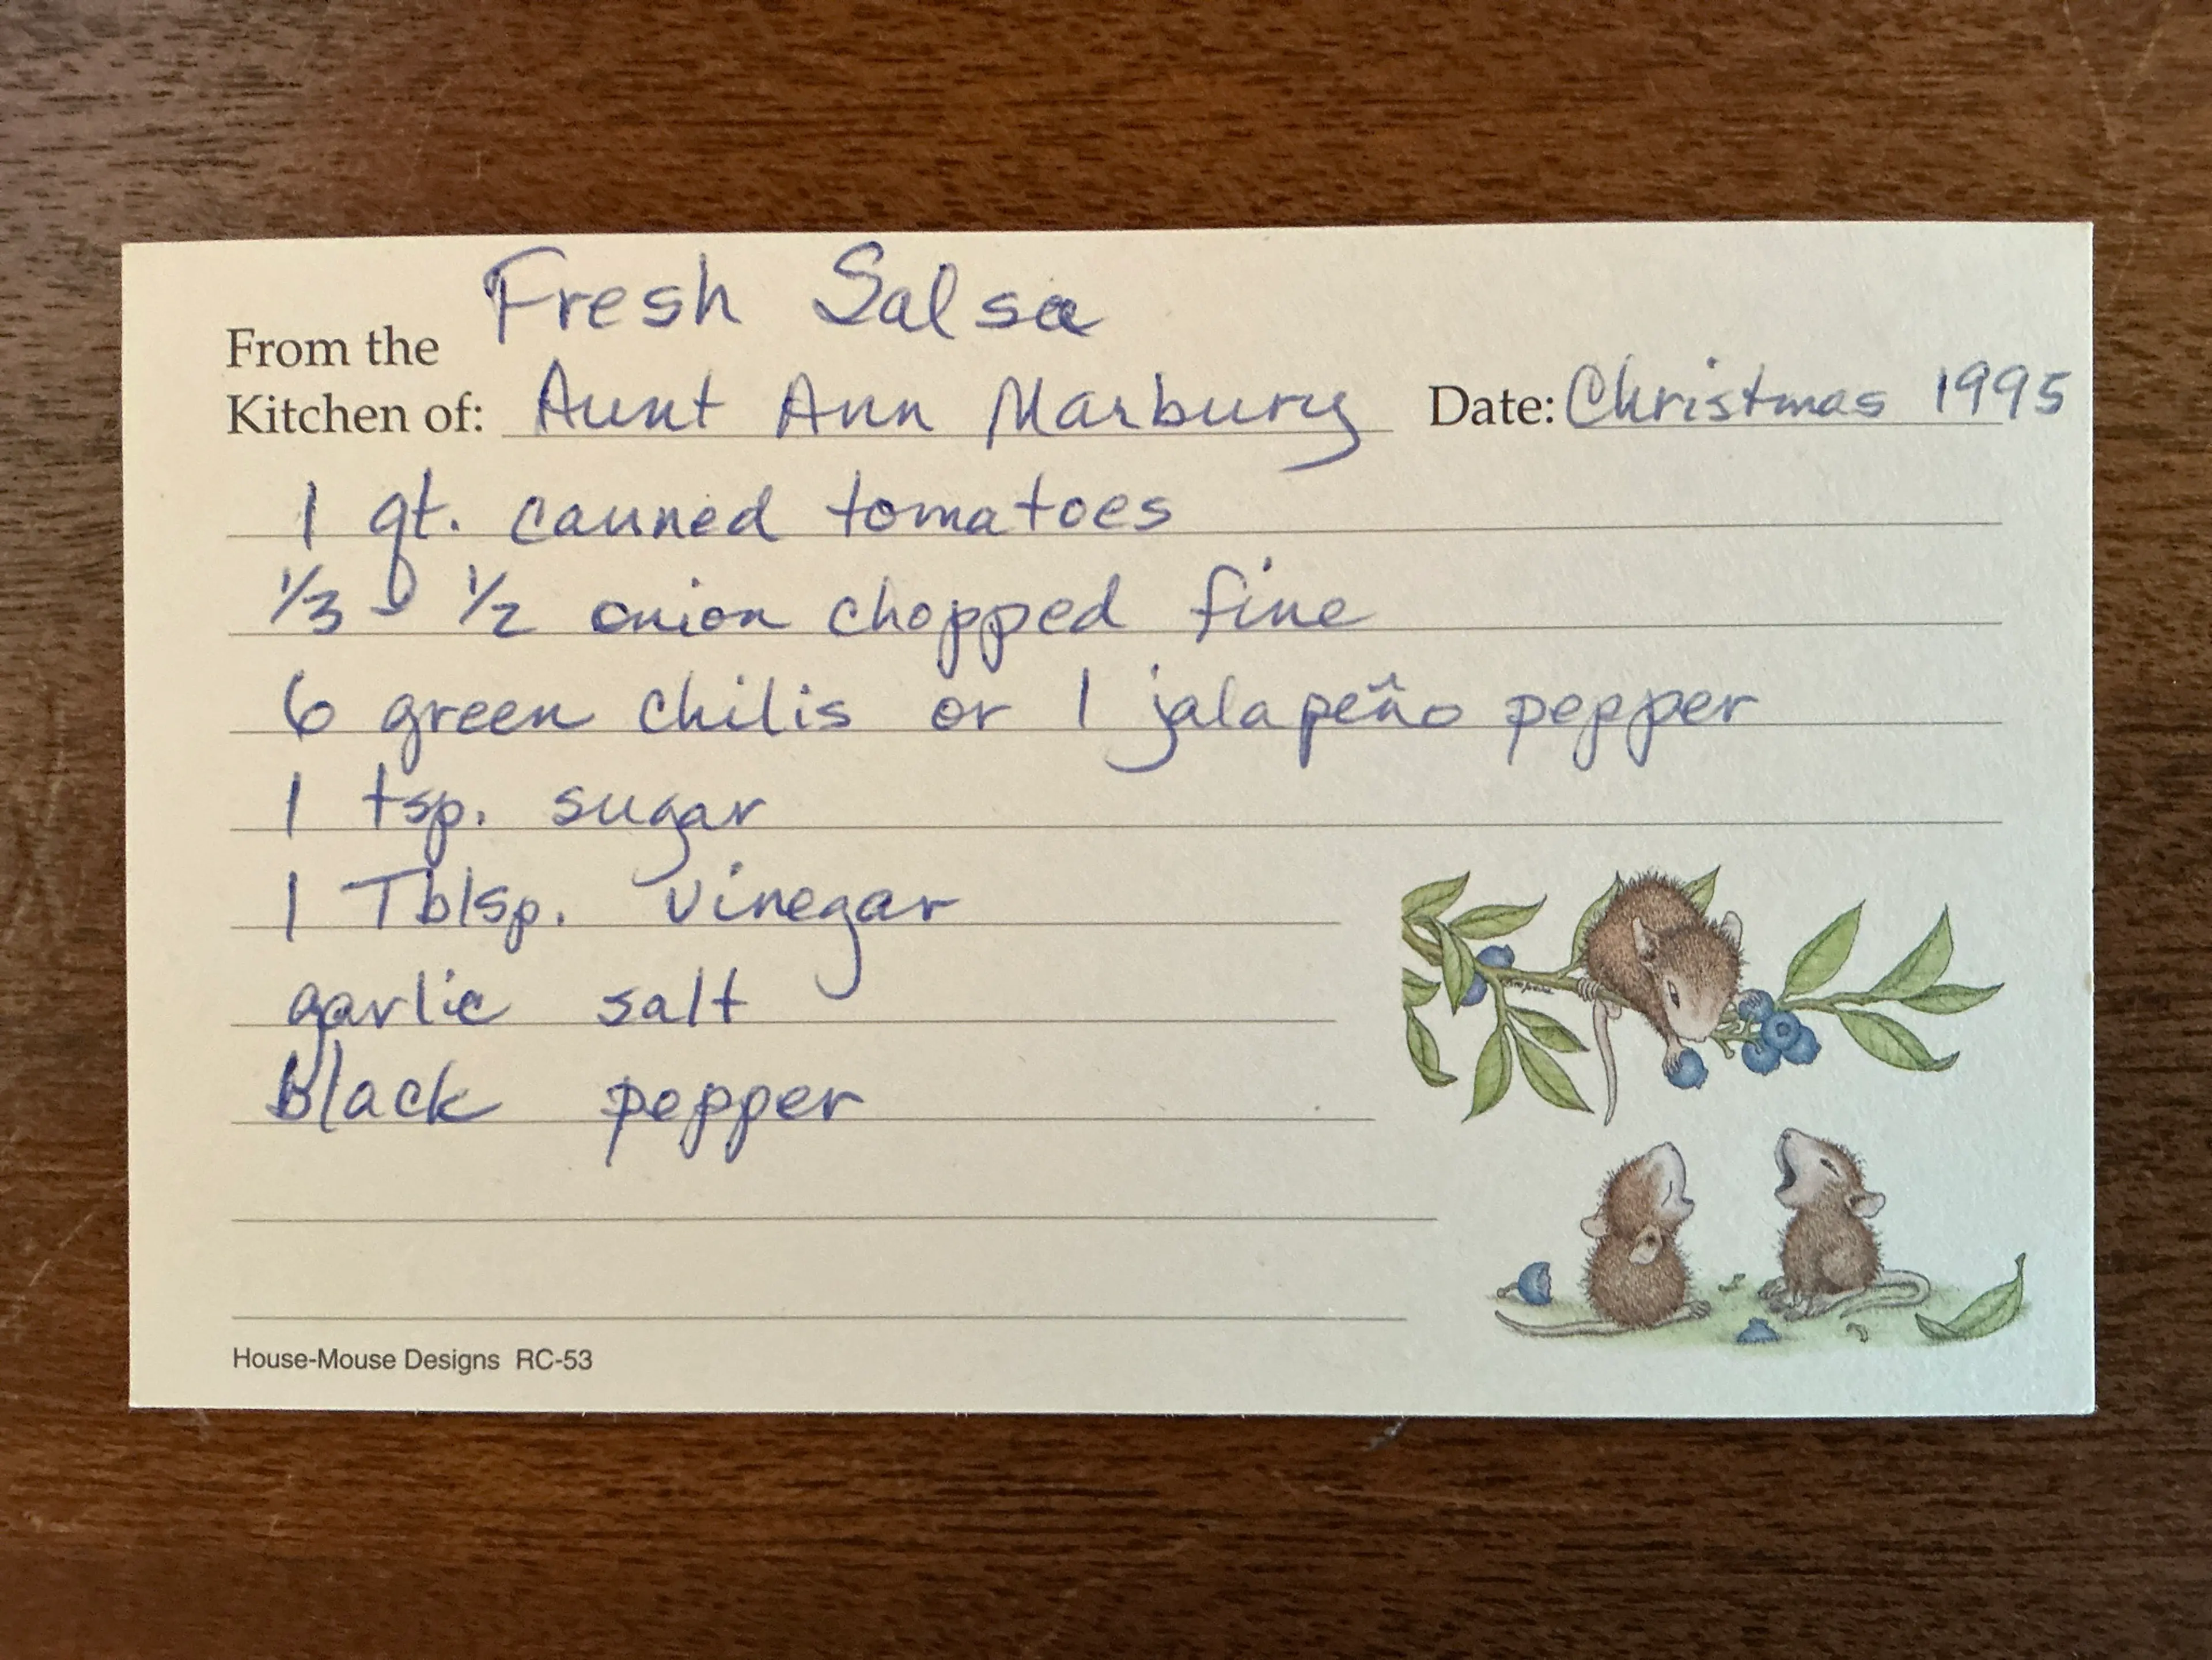 Fresh Salsa
From the
Kitchen of: Aunt Ann Marbury Date: Christmas 1995
1 qt. canned tomatoes
1/3 - 1/2 onion chopped fine
6 green chilis or 1 jalapeño pepper
1 tsp. sugar
1 Tblsp. vinegar
garlic salt
black pepper
House-Mouse Designs RC-53